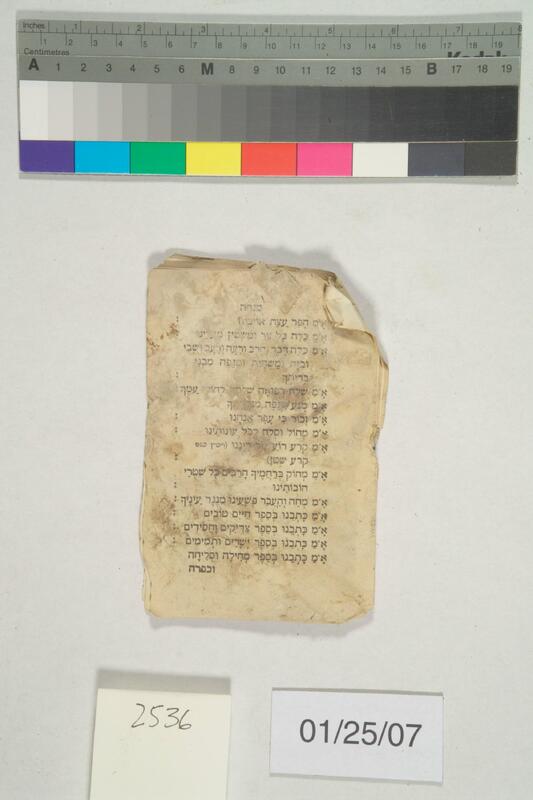 Inches 1 2 3 4 5 6 7 8
Centimetres 1 2 3 4 5 6 7 8 9 10 11 12 13 14 15 16 17 18 19
A 1 2 3 4 5 6 M 8 9 10 11 12 13 14 15 B 17 18 19
מנחה
א״מ הָפֵר עֲצַת אויבינו
א״מ כַּלֵּה כָּל צַר וּמַשְׂטִין
א״מ כַּלֵּה דֶּבֶר וְחֶרֶב וְרָעָה וְרָעָב וּשְׁבִי
וּמַשְׁחִית וּמַגֵּפָה מִבְּנֵי
בְרִיתֶךָ :
א״מ שְׁלַח רְפוּאָה עַמֶּךָ
א״מ מְנַע מַגֵּפָה
א״מ זָכוּר כִּי עָפָר אֲנָחְנוּ
א״מ מְחוֹל וּסְלַח לְכָל עֲוֹנוֹתֵינוּ
א״מ קְרַע רוֹעַ דִּינֵנוּ
קרע שטן)
א״מ מְחוֹק בְּרַחֲמֶיךָ הָרַבִּים כָּל שִׁטְרֵי
חוֹבוֹתֵינוּ
א״מ מְחֵה וְהַעֲבֵר פְּשָׁעֵינוּ מִנֶּגֶד עֵינֶיךָ :
א״מ כָּתְבֵנוּ בְּסֵפֶר חַיִּים טוֹבִים :
א״מ כָּתְבֵנוּ בְּסֵפֶר צַדִּיקִים וַחֲסִידִים :
א״מ כָּתְבֵנוּ בְּסֵפֶר יְשָׁרִים וּתְמִימִים :
א״מ כָּתְבֵנוּ בְּסֵפֶר מְחִילָה וּסְלִיחָה
וכפרה
2536
01/25/07